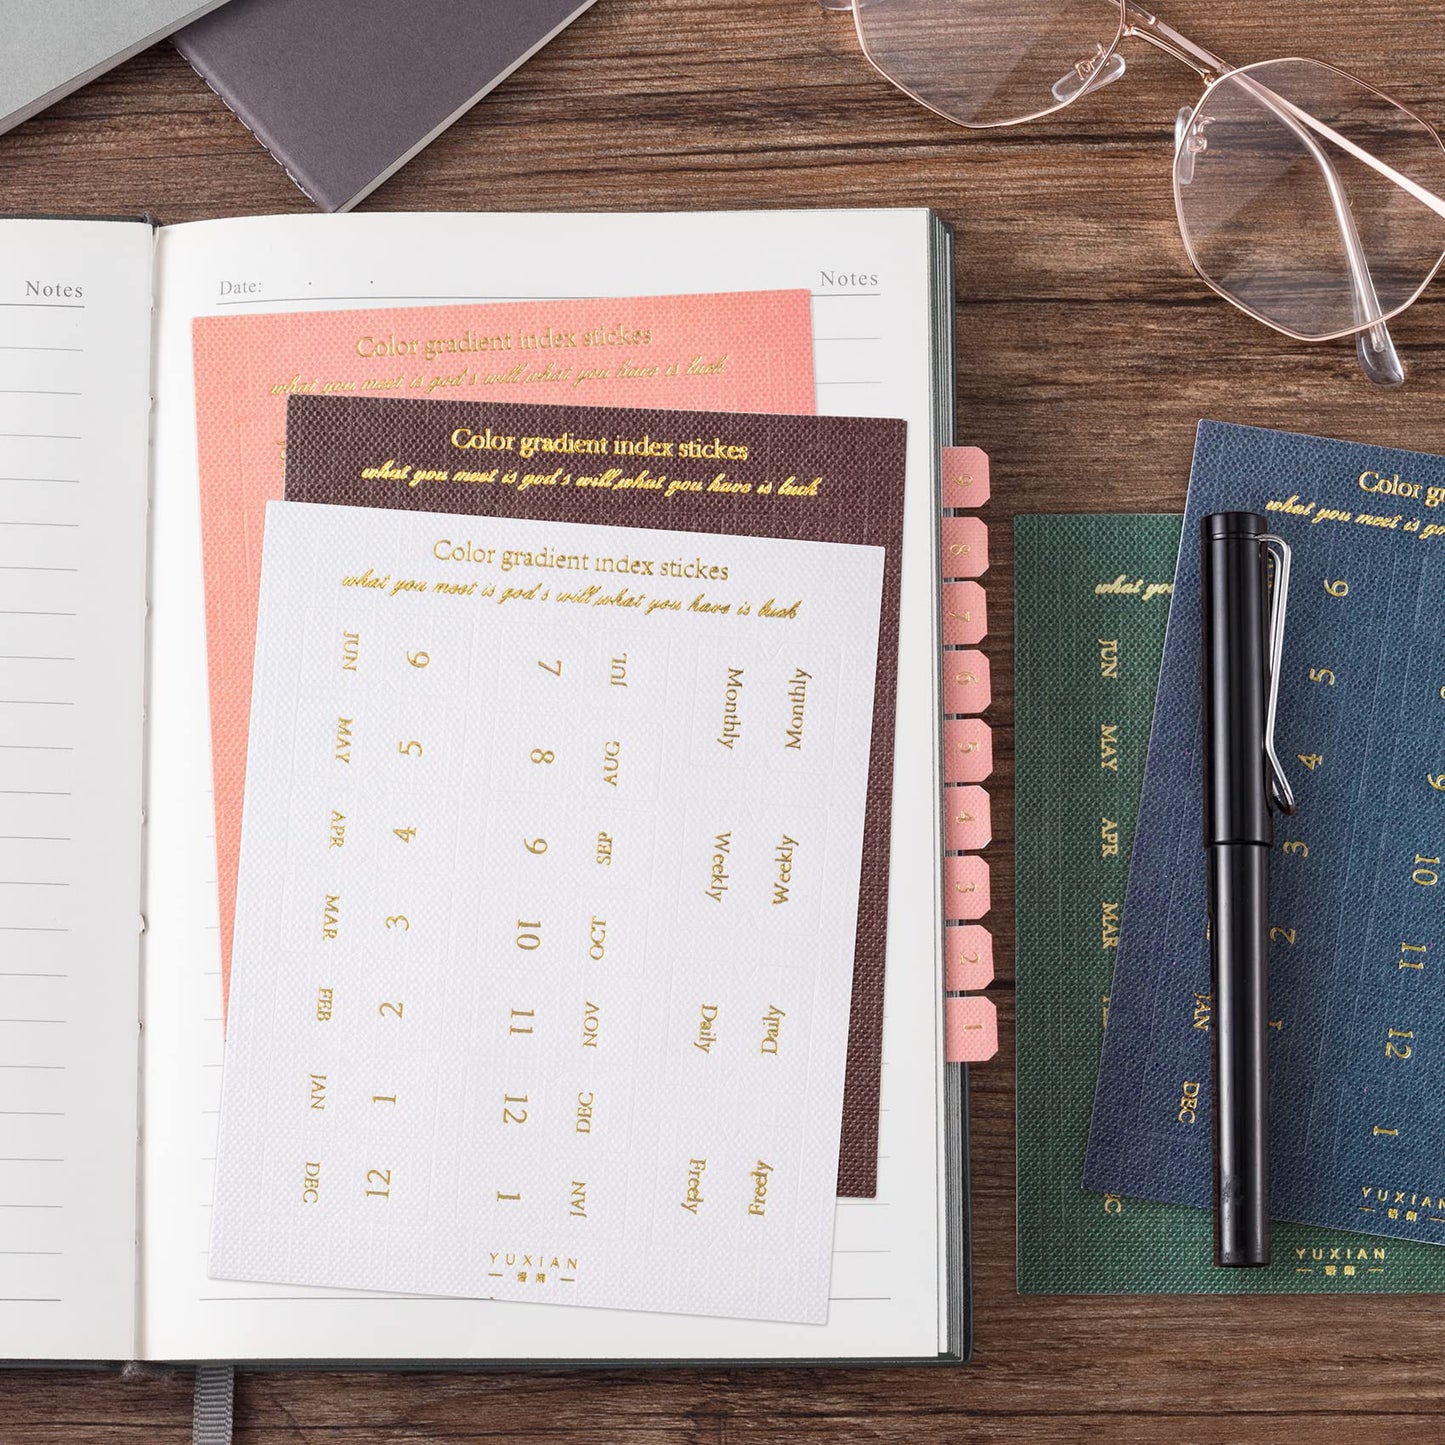 Notes
Date:
Notes
Color gradient index stickes
what you meet is god's will,what you have is luck
Color gradient index stickes
what you meet is god's will,what you have is luck
Color gradient index stickes
what you meet is god's will,what you have is luck
JUN 6 7 JUL Monthly Monthly
MAY 5 8 AUG
APR 4 9 SEP Weekly Weekly
MAR 3 10 OCT
FEB 2 11 NOV Daily Daily
JAN 1 12 DEC
DEC 12 1 JAN Freely Freely
YUXIAN
9
8
7
6
5
4
3
2
1
what yo
JUN
MAY
APR
MAR
YUXIAN
Color g
what you meet is g
6
5
4
3 10
2 11
JAN 1 12
DEC 1
YUXIAN